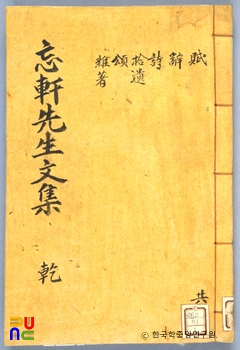 賦
辭
詩
拾遺
頌
雜著
忘軒先生文集
乾
共
PUNC
© 한국학중앙연구원